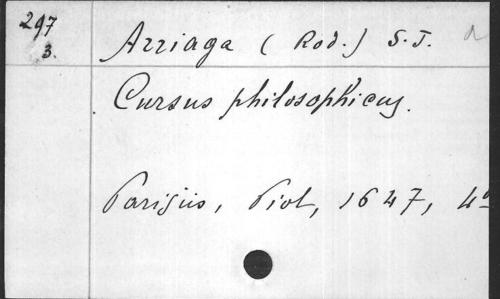 297
3.
Arriaga (Rod.) S.J.
Cursus philosophicus.
Parisiis, Piot, 1647, 4º